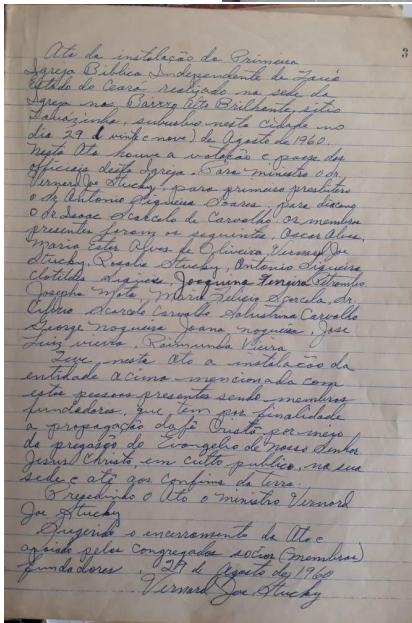 3
Ata da instalação da Primeira
Igreja Biblica Independente de Tauá
Estado do Ceará realizado na sede da
Igreja nas Barrio Alto Brilhante, sitio
suburbio nesta cidade no
dia 29 (vinte e nove) de Agosto de 1960.
Nesta Ato houve a votação e posse dos
officiais desta Igreja. Para ministro o dr.
Vernard Joe Stucky, para primeiro presbitero
o dr. Antonio Siqueira Soares, para diacono
o dr Isaac Scarcelo de Carvalho. Os membros
presentes foram os seguintes, Oscar Alves,
Maria Ester Alves de Oliveira, Vernard Joe
Stucky, Rosalie Stucky, Antonio Siqueira
Clotildes Siqueira, Joaquina Ferreira
Josepha Mota, Maria Scarcela, dr
Scarcelo Carvalho Salustrina Carvalho
George Nogueira Joana nogueira, Jose
Luiz vieira, Raimunda Vieira
Teve, nesta Ato a instalação da
entidade acima mencionada com
estas pessoas presentes sendo membros
fundadores, que tem por finalidade
a propagação da fé Cristã por meio
da pregação do Evangelho de Nosso Senhor
Jesus Christo, em culto publico, na sua
sede e até aos confins da terra.
Presedindo o Ato o ministro Vernard
Joe Stucky
Sugerido o encerramento da Ato e
apoiado pelos congregados socios (membros)
fundadores, 29 de Agosto de 1960
Vernard Joe Stucky